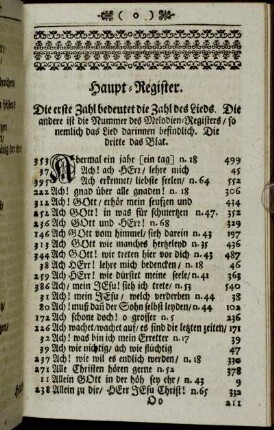 ( o )
Haupt-Register.
Die erste Zahl bedeutet die Zahl des Lieds. Die
andere ist die Nummer des Melodien-Registers / so
nemlich das Lied darinnen befindlich. Die
dritte das Blat.
353 Abermal ein jahr [ein tag] n. 18 499
37 Ach! ach HErr / lehre mich 45
397 Ach erkennet / liebste seelen / n. 64 552
222 Ach! gnad über alle gnaden! n. 18 306
312 Ach! GOtt / erhör mein seufzen und 414
252 Ach GOtt! in was für schmertzen n. 47. 352
236 Ach GOtt und HErr! n. 68 329
146 Ach GOtt von himmel / sieh darein n. 43 197
313 Ach GOtt wie manches hertzeleyd n. 35 436
344 Ach GOtt! wir treten hier vor dich n. 43 487
38 Ach HErr! lehre mich bedencken / n. 18 46
259 Ach HErr! wie dürstet meine seele / n. 41 363
386 Ach / mein JEsu! sieh ich trete / n. 53 540
31 Ach! mein JEsu / welch verderben n. 44 38
80 Ach! muß dañ der Sohn selbst leyden / n. 44 102
172 Ach schone doch! o grosser n. 5 236
126 Ach wachet / wachet auf / es sind die letzten zeiten / 171
32 Ach! was bin ich mein Erretter n. 17 39
39 Ach wie nichtig / ach wie flüchtig 47
237 Ach! wie wil es endlich werden / n. 18 330
271 Alle Christen hören gerne n. 52 378
11 Allein GOtt in der höh sey ehr / n. 43 9
238 Allein zu dir / HErr JEsu Christ! n. 65 332
Oo 211